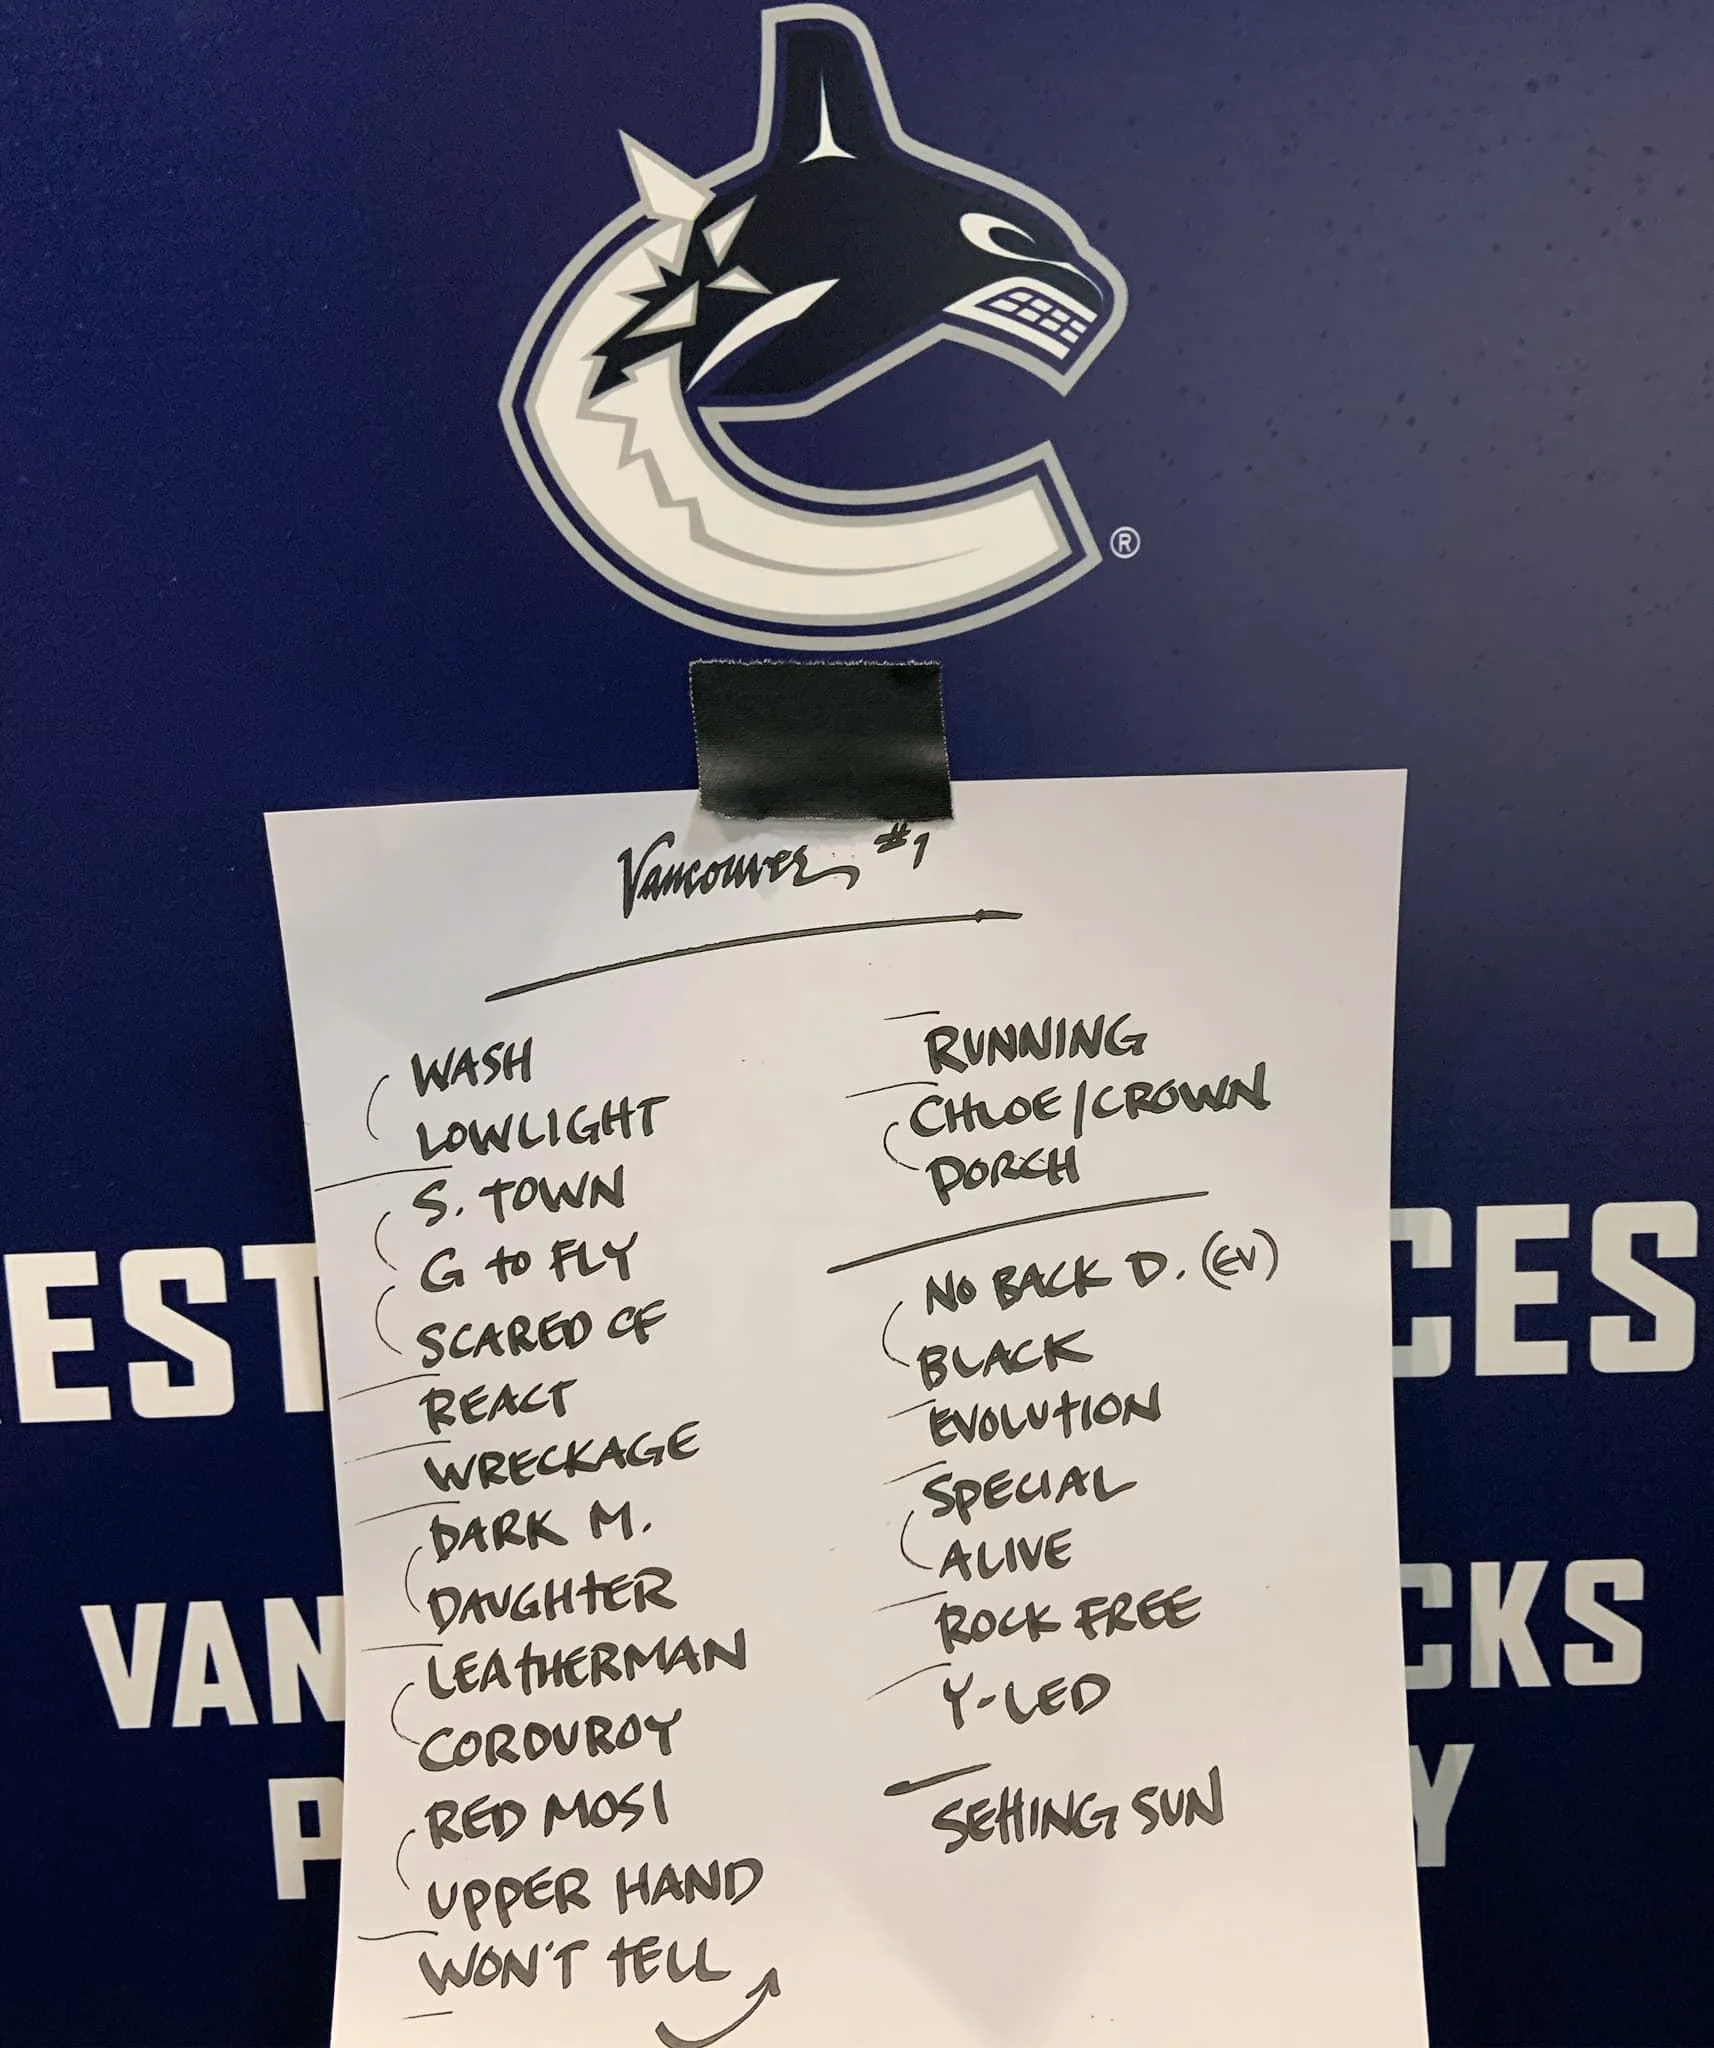 ®
Vancouver #1
WASH
LOWLIGHT
S. TOWN
G to FLY
SCARED OF
REACT
WRECKAGE
DARK M.
DAUGHTER
LEATHERMAN
CORDUROY
RED MOSI
UPPER HAND
WON'T TELL
RUNNING
CHLOE/CROWN
PORCH
NO BACK D. (EV)
BLACK
EVOLUTION
SPECIAL
ALIVE
ROCK FREE
Y-LED
SETTING SUN
EST CES
VAN CKS
P Y